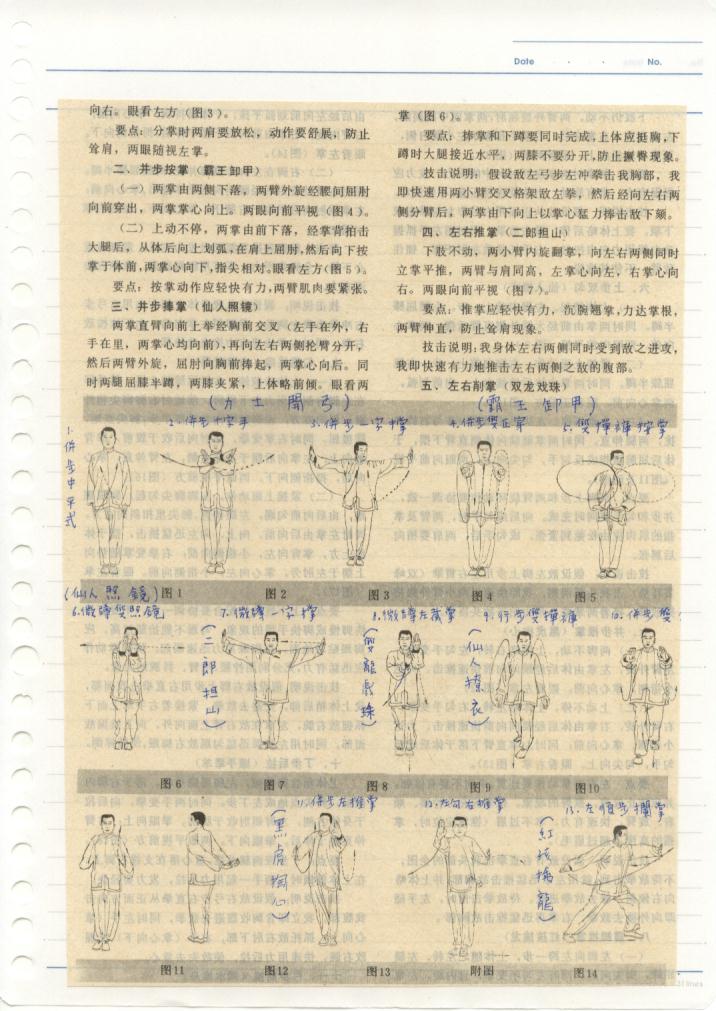 Date . . No.
向右。眼看左方（图3）。
要点：分掌时两肩要放松，动作要舒展，防止
耸肩，两眼随视左掌。
二、并步按掌（霸王卸甲）
（一）两掌由两侧下落，两臂外旋经腰间屈肘
向前穿出，两掌掌心向上。两眼向前平视（图4）。
（二）上动不停，两掌由前下落，经掌背拍击
大腿后，从体后向上划弧，在肩上屈肘，然后向下按
掌于体前，两掌心向下，指尖相对。眼看左方（图5）。
要点：按掌动作应轻快有力，两臂肌肉要紧张。
三、并步捧掌（仙人照镜）
两掌直臂向前上举经胸前交叉（左手在外，右
手在里，两掌心均向前），再向左右两侧抡臂分开，
然后两臂外旋，屈肘向胸前捧起，两掌心向后。同
时两腿屈膝半蹲，两膝夹紧，上体略前倾。眼看两
掌（图6）。
要点：捧掌和下蹲要同时完成，上体应挺胸，下
蹲时大腿接近水平，两膝不要分开，防止撅臀现象。
技击说明：假设敌左弓步左冲拳击我胸部，我
即快速用两小臂交叉格架敌左拳，然后经向左右两
侧分臂后，两掌由下向上以掌心猛力捧击敌下颏。
四、左右推掌（二郎担山）
下肢不动，两小臂内旋翻掌，向左右两侧同时
立掌平推，两臂与肩同高，左掌心向左，右掌心向
右。两眼向前平视（图7）。
要点：推掌应轻快有力，沉腕翘掌，力达掌根，
两臂伸直，防止耸肩现象。
技击说明：我身体左右两侧同时受到敌之进攻，
我即快速有力地推击左右两侧之敌的腹部。
五、左右削掌（双龙戏珠）
（力士開弓）
（霸王卸甲）
1.併步中平式
2.併步十字手
3.併步一字撐
4.併步雙正穿
5.雙撣褲按掌
图1 图2 图3 图4 图5
(仙人照鏡)
6.微蹲雙照鏡
7.微蹲一字撐
8.微蹲左截掌
9.行步雙撣褲
10.併步雙
（二郎担山）
（雙龍戲珠）
（仙人撩衣）
图6 图7 图8 图9 图10
11.併步左推掌
12.左勾右推掌
13.左順步攔掌
（黑虎掏心）
（紅孩擒龍）
图11 图12 图13 附图 图14
31 lines